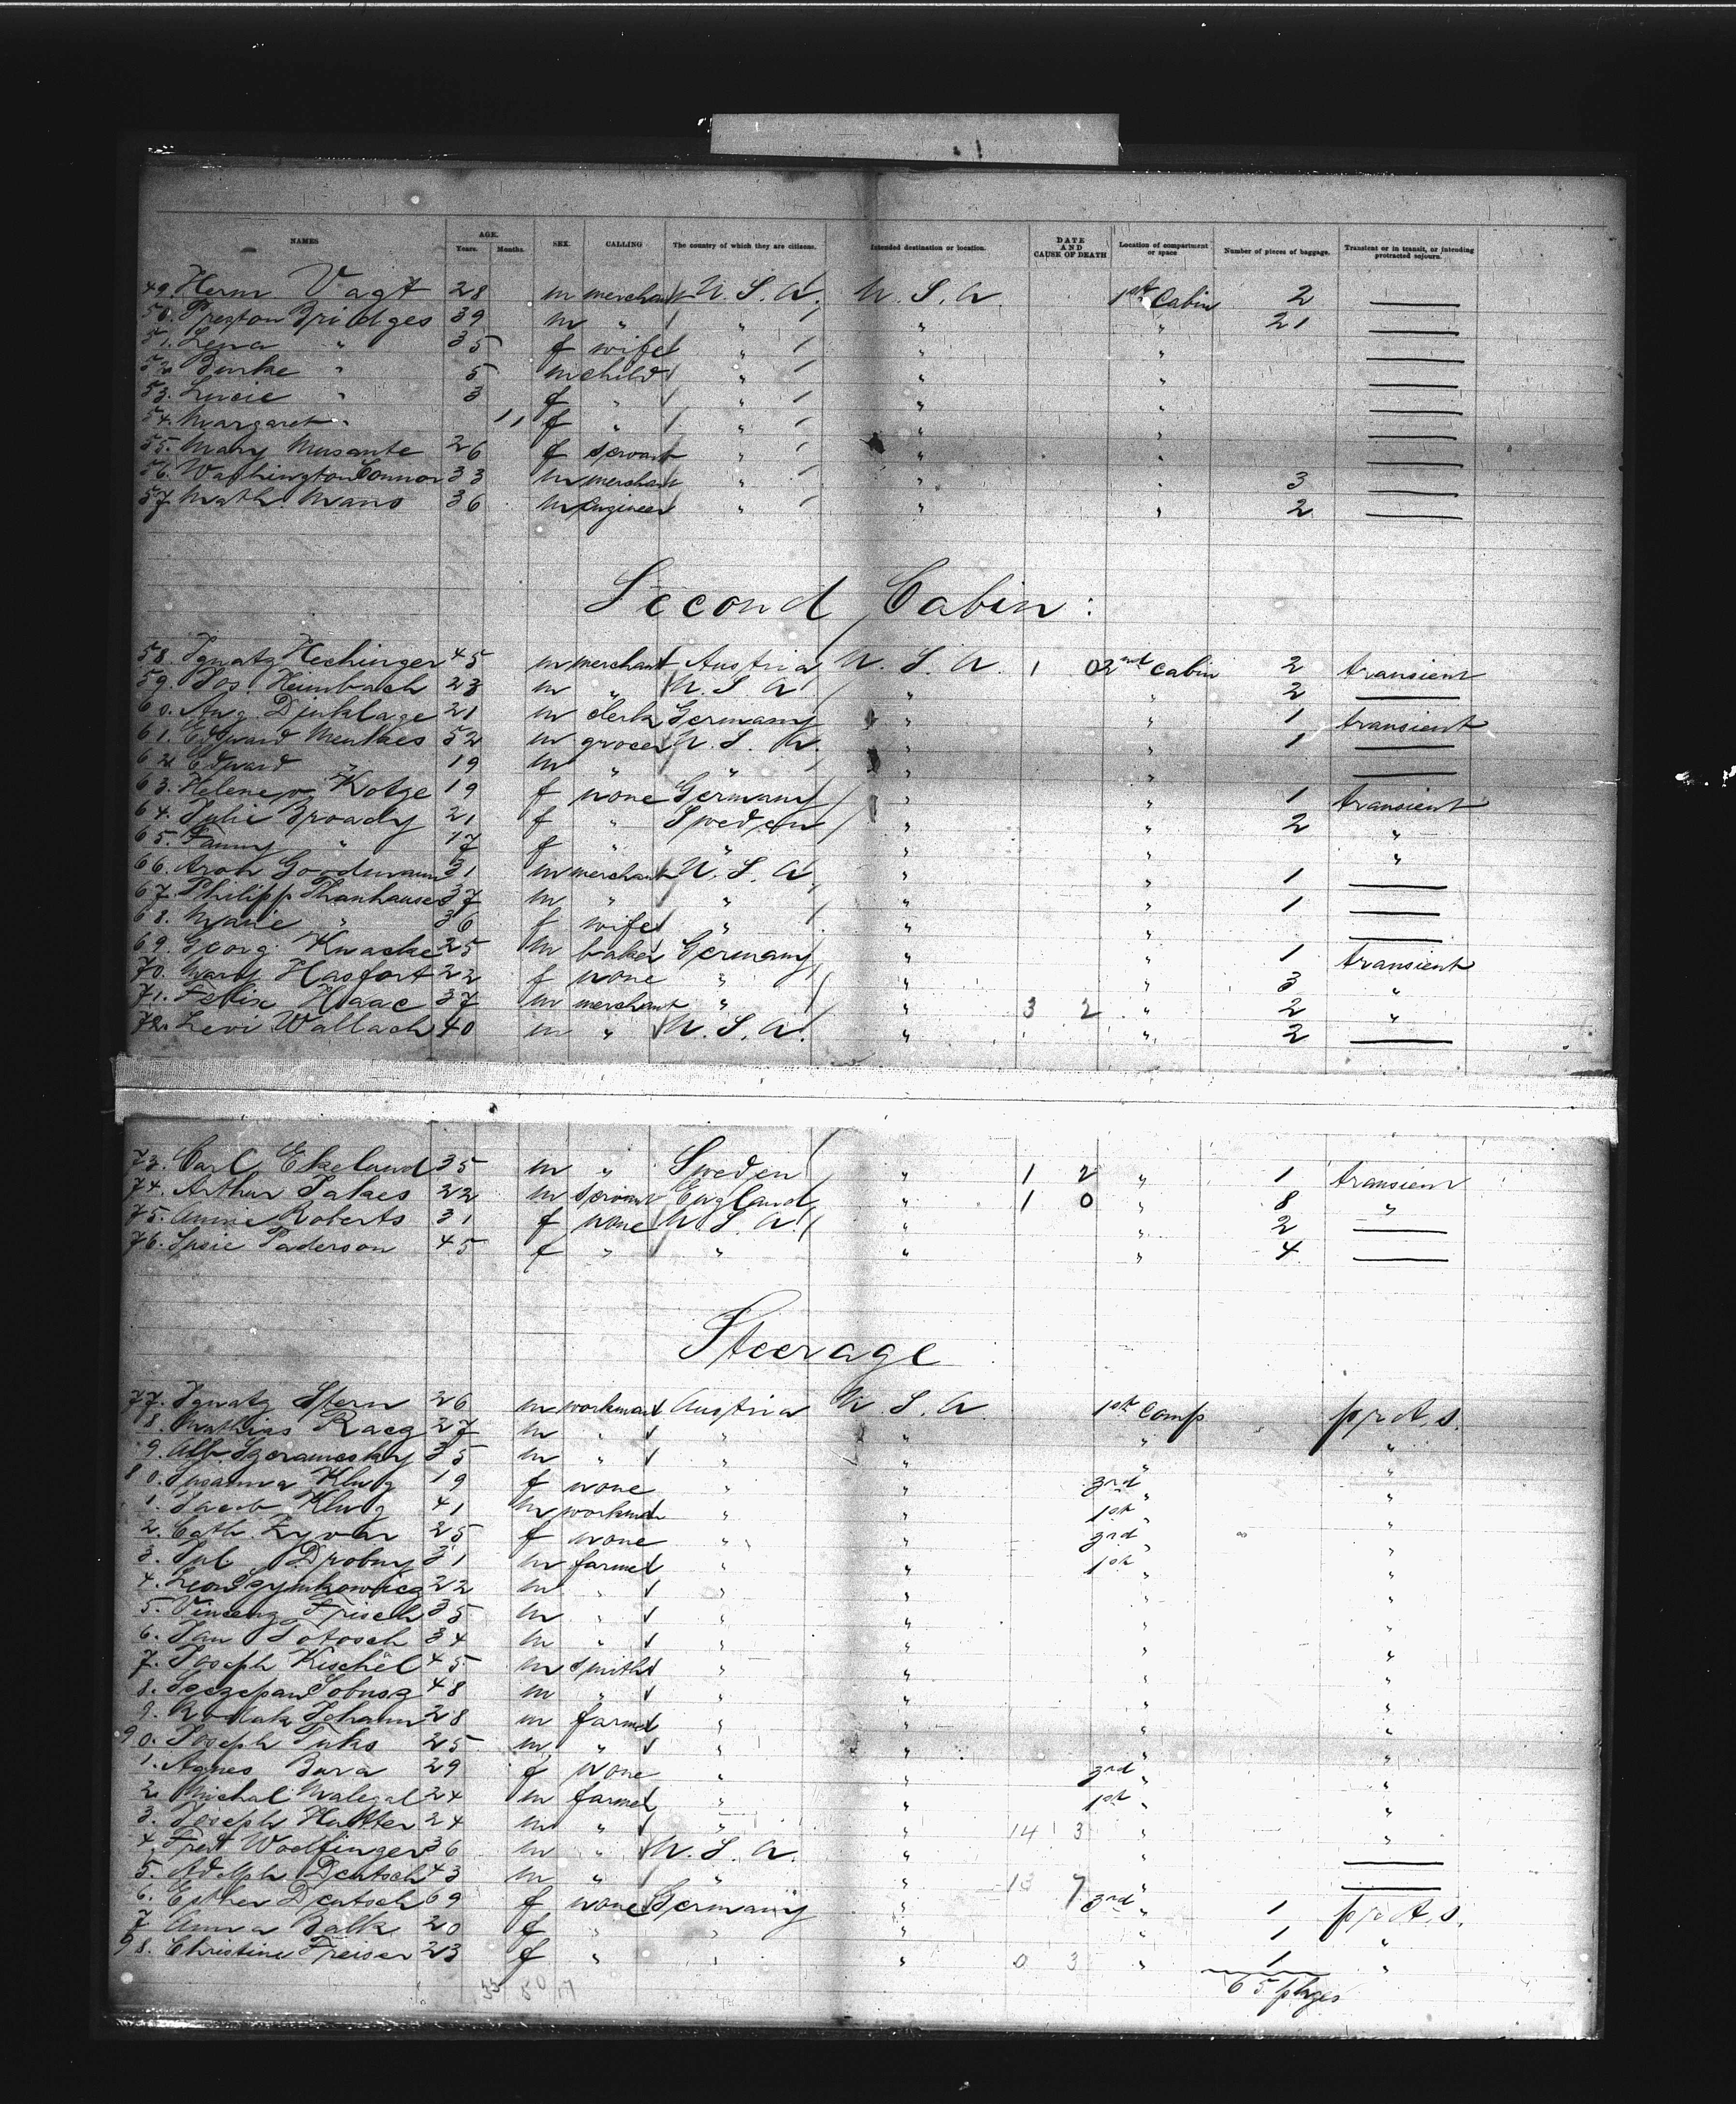 NAMES AGE. Years. Months. SEX. CALLING The country of which they are citizens. Intended destination or location. DATE AND CAUSE OF DEATH Location of compartment or space Number of pieces of baggage. Transient or in transit, or intending protracted sojourn.
49. Herm. Vagt 28 m merchant U. S. A. U. S. A. 1st Cabin 2 —
50. Preston Bridges 39 m " " " " 21 —
51. Lena " 35 f wife " " " —
52. Burke " 5 m child " " " —
53. Lucie " 3 f " " " " —
54. Margaret " 11 f " " " " —
55. Mary Musante 26 f servant " " " —
56. Washington Connor 33 m merchant " " " 3 —
57. Math. Mans 36 m Engineer " " " 2 —
Second Cabin:
58. Ignatz Hechinger 45 m merchant Austria U. S. A. 1 0 2nd Cabin 2 transient
59. Jos. Heimbach 23 m " U. S. A. " " 2 —
60. Aug. Dinklage 21 m clerk Germany " " 1 transient
61. Edward Menkes 52 m grocer U. S. A. " " 1 —
62. Edward " 19 m " " " " —
63. Helene v. Kotze 19 f none Germany " " 1 transient
64. Julie Broady 21 f " Sweden " " 2 "
65. Fanny " 17 f " " " " "
66. Aron Goodmann 31 m merchant U. S. A. " " 1 —
67. Philipp Thanhauser 37 m " " " " 1 —
68. Marie " 36 f wife " " " —
69. Georg Knacke 25 m baker Germany " " 1 transient
70. Mary Hasfort 22 f none " " " 3 "
71. Felix Haac 37 m merchant " " 3 2 " 2 "
72. Levi Wallach 40 m " U. S. A. " " 2 —
73. Carl Ekelund 35 m " Sweden " 1 2 " 1 transient
74. Arthur Takes 22 m servant England " 1 0 " 8 "
75. Annie Roberts 31 f none U. S. A. " " 2 —
76. Susie Paderson 45 f " " " " 4 —
Steerage
77. Ignatz Stern 26 m workman Austria U. S. A. 1st Comp
8. Mathias Racz 27 m " " " " "
9. Alb. 35 m " " " " "
80. Susanna Klug 19 f none " " 3rd " "
1. Jacob Klug 41 m workman " " 1st " "
2. Cath. Zyvar 25 f none " " 3rd " "
3. Jul. Drobny 31 m farmer " " 1st " "
4. Leon Szymkowicz 22 m " " " " "
5. Vincenz Frisch 35 m " " " " "
6. Jan Totosch 34 m " " " " "
7. Joseph Kischel 45 m smith " " " "
8. Szczepan Sobusz 48 m " " " " "
9. Johann 28 m farmer " " " "
90. Joseph Tuks 25 m " " " " "
1. Agnes Bura 29 f none " " 3rd " "
2. Michal Malegal 24 m farmer " " 1st " "
3. Joseph Hutter 24 m " " " 14 3 " "
4. Fred. Woelfinger 36 m " U. S. A. " " —
5. Adolph Deutsch 43 m " " " 13 7 " —
6. Esther Deutsch 69 f none Germany " 3rd " 1
7 Anna Balk 20 f " " " " 1 "
98. Christine Freiser 23 f " " " 0 3 " 1 "
65 pkges